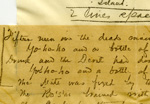 Island.
2 line space
Fifteen men on the dead man's
Yo-ho-ho and a bottle of
Drink and the Devil had done
Yo-ho-ho and a bottle of
The mate was fixed by
The Bo's'n brained with